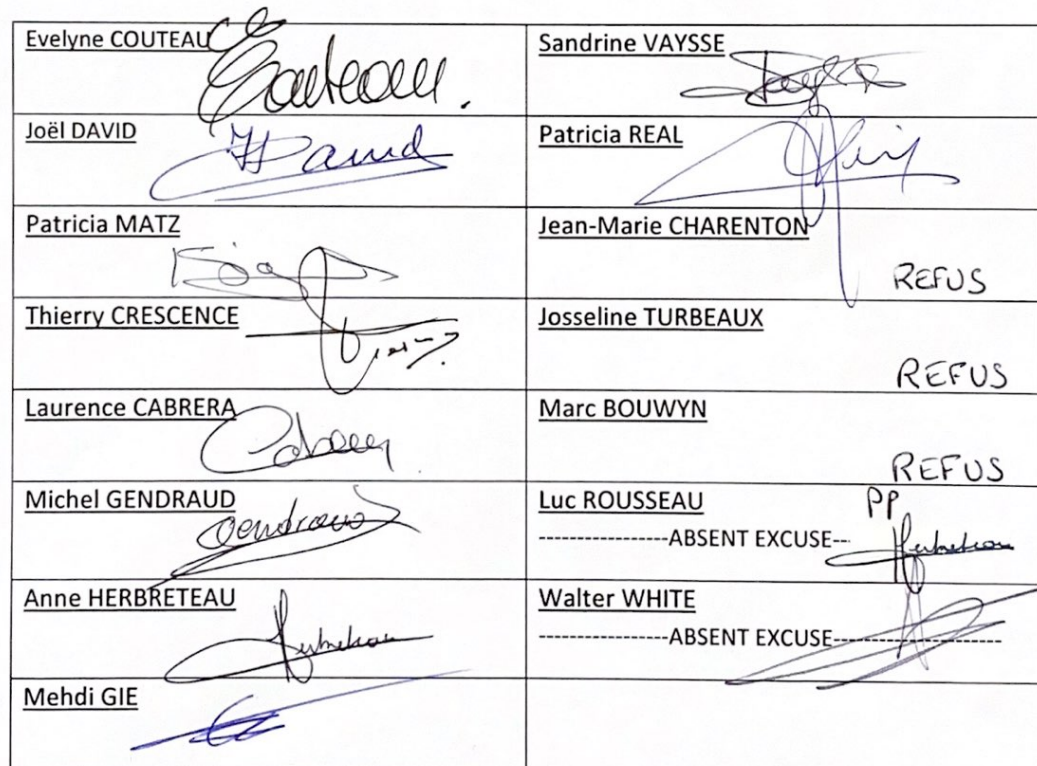 Evelyne COUTEAU
Couteau.
Sandrine VAYSSE
Joël DAVID
JDavid
Patricia REAL
Patricia MATZ
Jean-Marie CHARENTON
REFUS
Thierry CRESCENCE
Josseline TURBEAUX
REFUS
Laurence CABRERA
Marc BOUWYN
REFUS
Michel GENDRAUD
Gendraud
Luc ROUSSEAU
PP
---------------ABSENT EXCUSE--
Herbreteau
Anne HERBRETEAU
Herbreteau
Walter WHITE
---------------ABSENT EXCUSE--------------------
Mehdi GIE